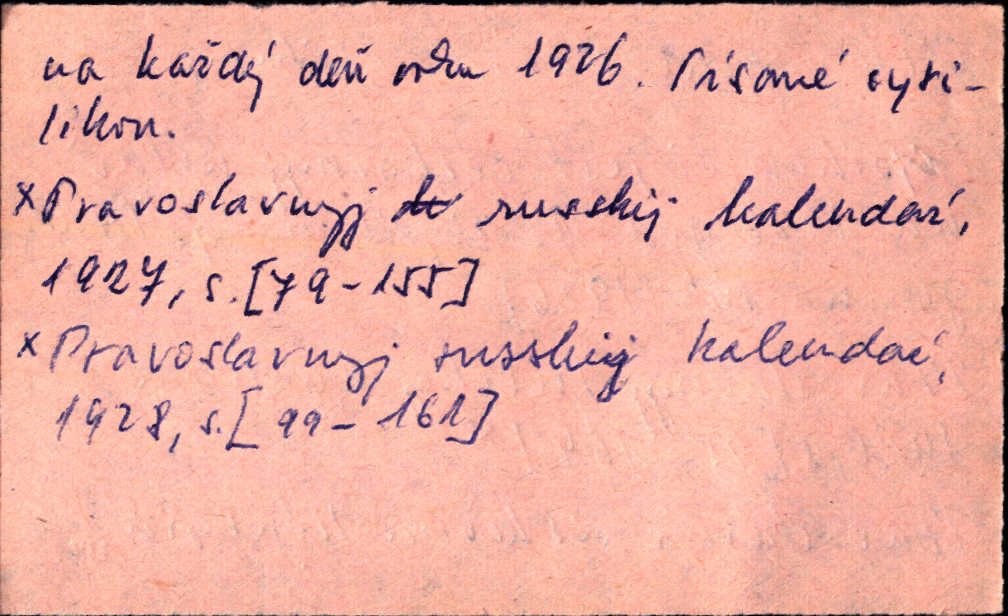 na každý deň roku 1926. Písané cyri-
likou.
x Pravoslavnyj russkij kalendar',
1927, s. [79-155]
x Pravoslavnyj russkij kalendar',
1928, s. [99-161]